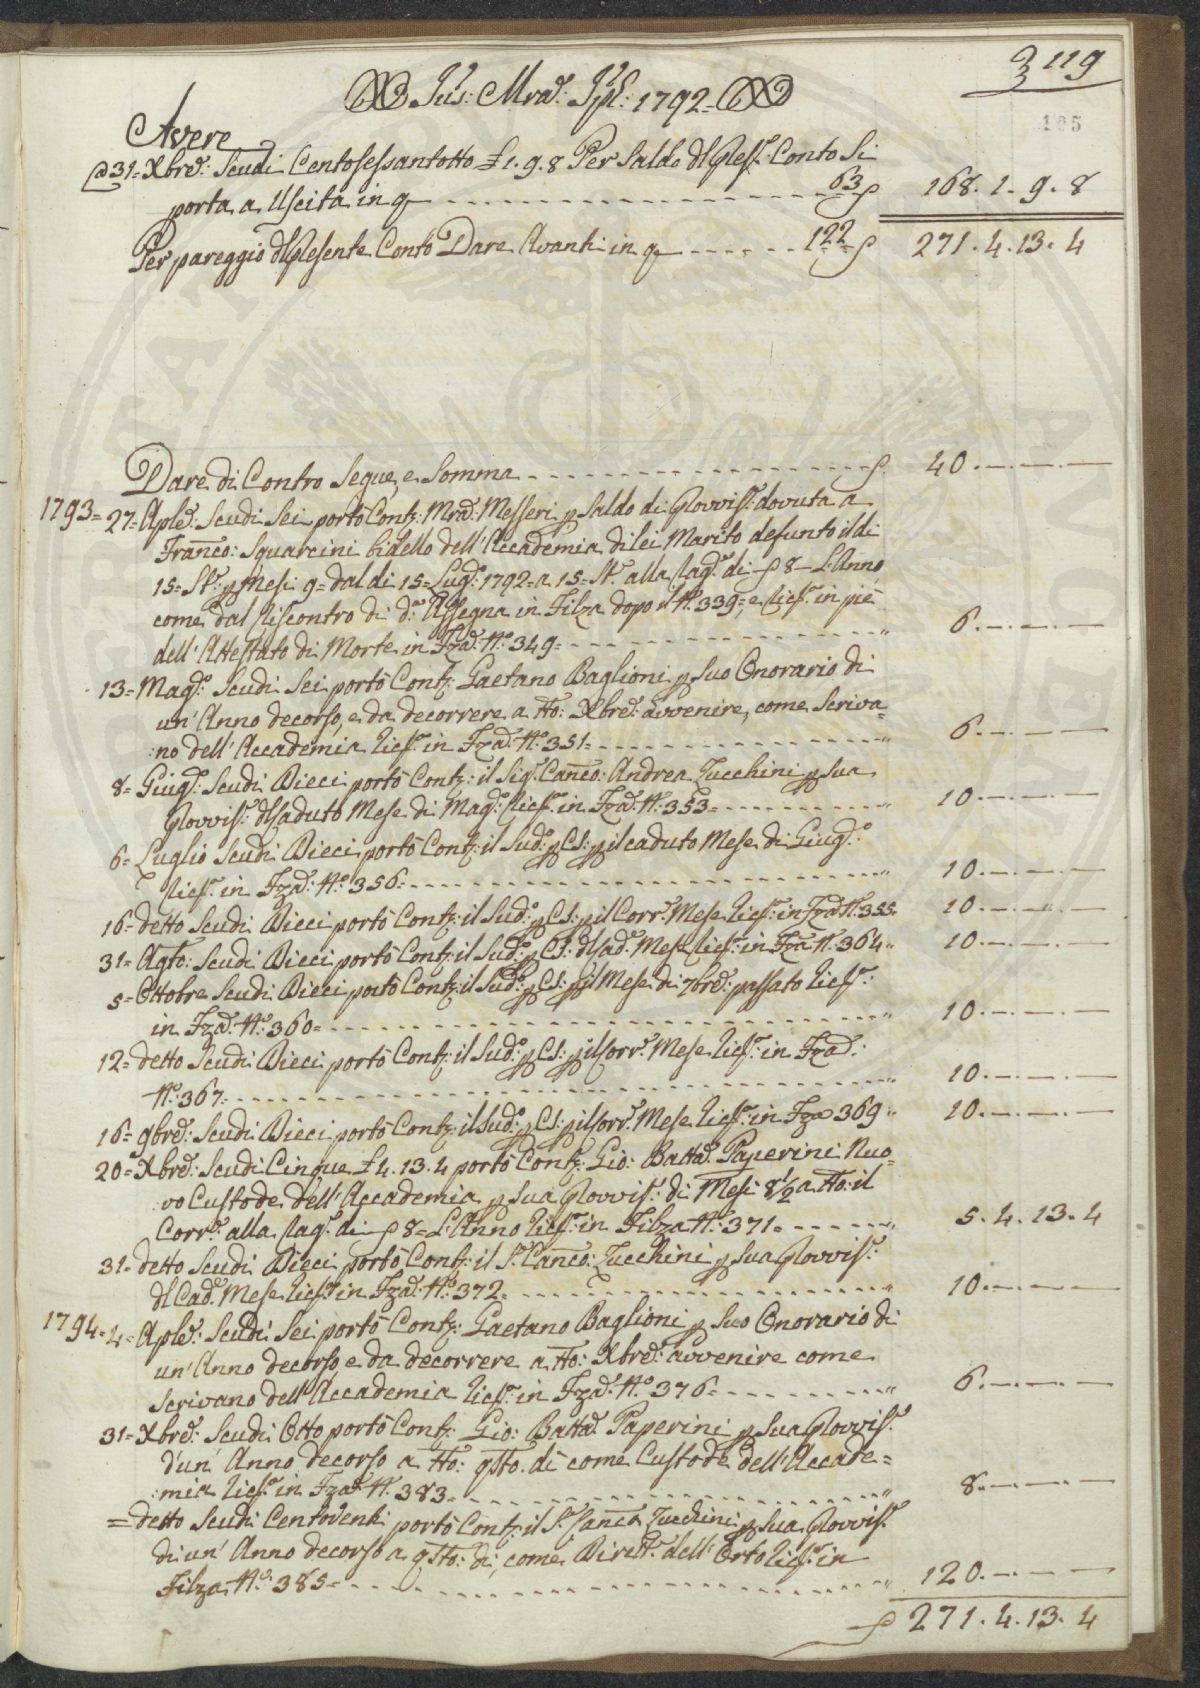 3 119
105
Jus: Mrã: Jpl: 1792=
Avere
@ 31= Xbrẽ: Scudi Centosessantotto £ 1. 9. 8 Per Saldo dl Pleste Conto Si
porta a Uscita in q 63 168. 1. 9. 8
Per pareggio dl Plesente Conto Dare Avanti in q 122 271. 4. 13. 4
Dare di Contro Segue, e Somma 40.
1793= 27= Aplẽ: Scudi Sei portò Contz: Mrã: Messeri p Saldo di Plovvisẽ: dovuta a
Franco: Squarcini bidello dell'Accademia di lei Marito defunto il di
15= St: p Mesi 9= dal di 15= Lugo: 1792= a 15= St: alla rag: di 8 L'Anno
come dal Riscontro di do: Assegna in Filza dopo il No: 339=, e Ricsa: in piè
dell'Attestato di Morte in Fza: No: 349= 6.
13= Mago: Scudi Sei portò Contz: Gaetano Baglioni p Suo Onorario di
un'Anno decorso, e da decorrere a tto: Xbrẽ: avvenire, come Scriva=
:no dell'Accademia Ricsa: in Fza: No: 351= 6.
8= Giugo: Scudi Dieci portò Contz: il Sigr: Canco: Andrea Zucchini p Sua
Plovvisẽ: dl Caduto Mese di Mago: Ricsa: in Fza: No: 353= 10.
6= Luglio Scudi Dieci portò Contz: il Sudo: p Cs: p il caduto Mese di Giugo:
Ricsa: in Fza: No: 356= 10.
16= detto Scudi Dieci portò Contz: il Sudo: p Cs: p il Corre: Mese Ricsa: in Fza No: 355. 10.
31= Agto: Scudi Dieci portò Contz: il Sudo: p Cs: dl Cado: Mese Ricsa: in Fza No: 364 10.
5= Ottobre Scudi Dieci portò Contz: il Sudo: p Cs: p il Mese di 7brẽ: passato Ricsa:
in Fza: No: 360= 10.
12= detto Scudi Dieci portò Contz: il Sudo: p Cs: p il Corre: Mese Ricsa: in Fza:
No: 367. 10.
16= 9brẽ: Scudi Dieci portò Contz: il Sudo: p Cs: p il Corre: Mese Ricsa: in Fza 369 10.
20= Xbrẽ: Scudi Cinque £ 4. 13. 4 portò Contz: Gio: Batta: Paperini Nuo=
:vo Custode dell'Accademia p Sua Plovvisẽ: di Mesi 8½ a tto: il
Corre: alla rag: di 8= L'Anno Ricsa: in Filza No: 371= 5. 4. 13. 4
31= detto Scudi Dieci portò Contz: il Sr: Canco: Zucchini p Sua Plovvisẽ:
dl Cado: Mese Ricsa: in Fza: No: 372= 10.
1794= 4= Aplẽ: Scudi Sei portò Contz: Gaetano Baglioni p Suo Onorario di
un'Anno decorso, e da decorrere a tto: Xbrẽ: avvenire come
Scrivano dell'Accademia Ricsa: in Fza: No: 376= 6.
31= Xbrẽ: Scudi Otto portò Contz: Gio: Batta: Paperini p Sua Plovvisẽ:
d'un'Anno decorso a tto: qsto: di come Custode dell'Accade=
:mia Ricsa: in Fza: No: 383= 8.
= detto Scudi Centoventi portò Contz: il Sr: Canco Zucchini p Sua Plovvisẽ:
di un'Anno decorso a qsto: di, come Dirett: dell'Orto Ricsa: in
Filza No: 385= 120.
271. 4. 13. 4